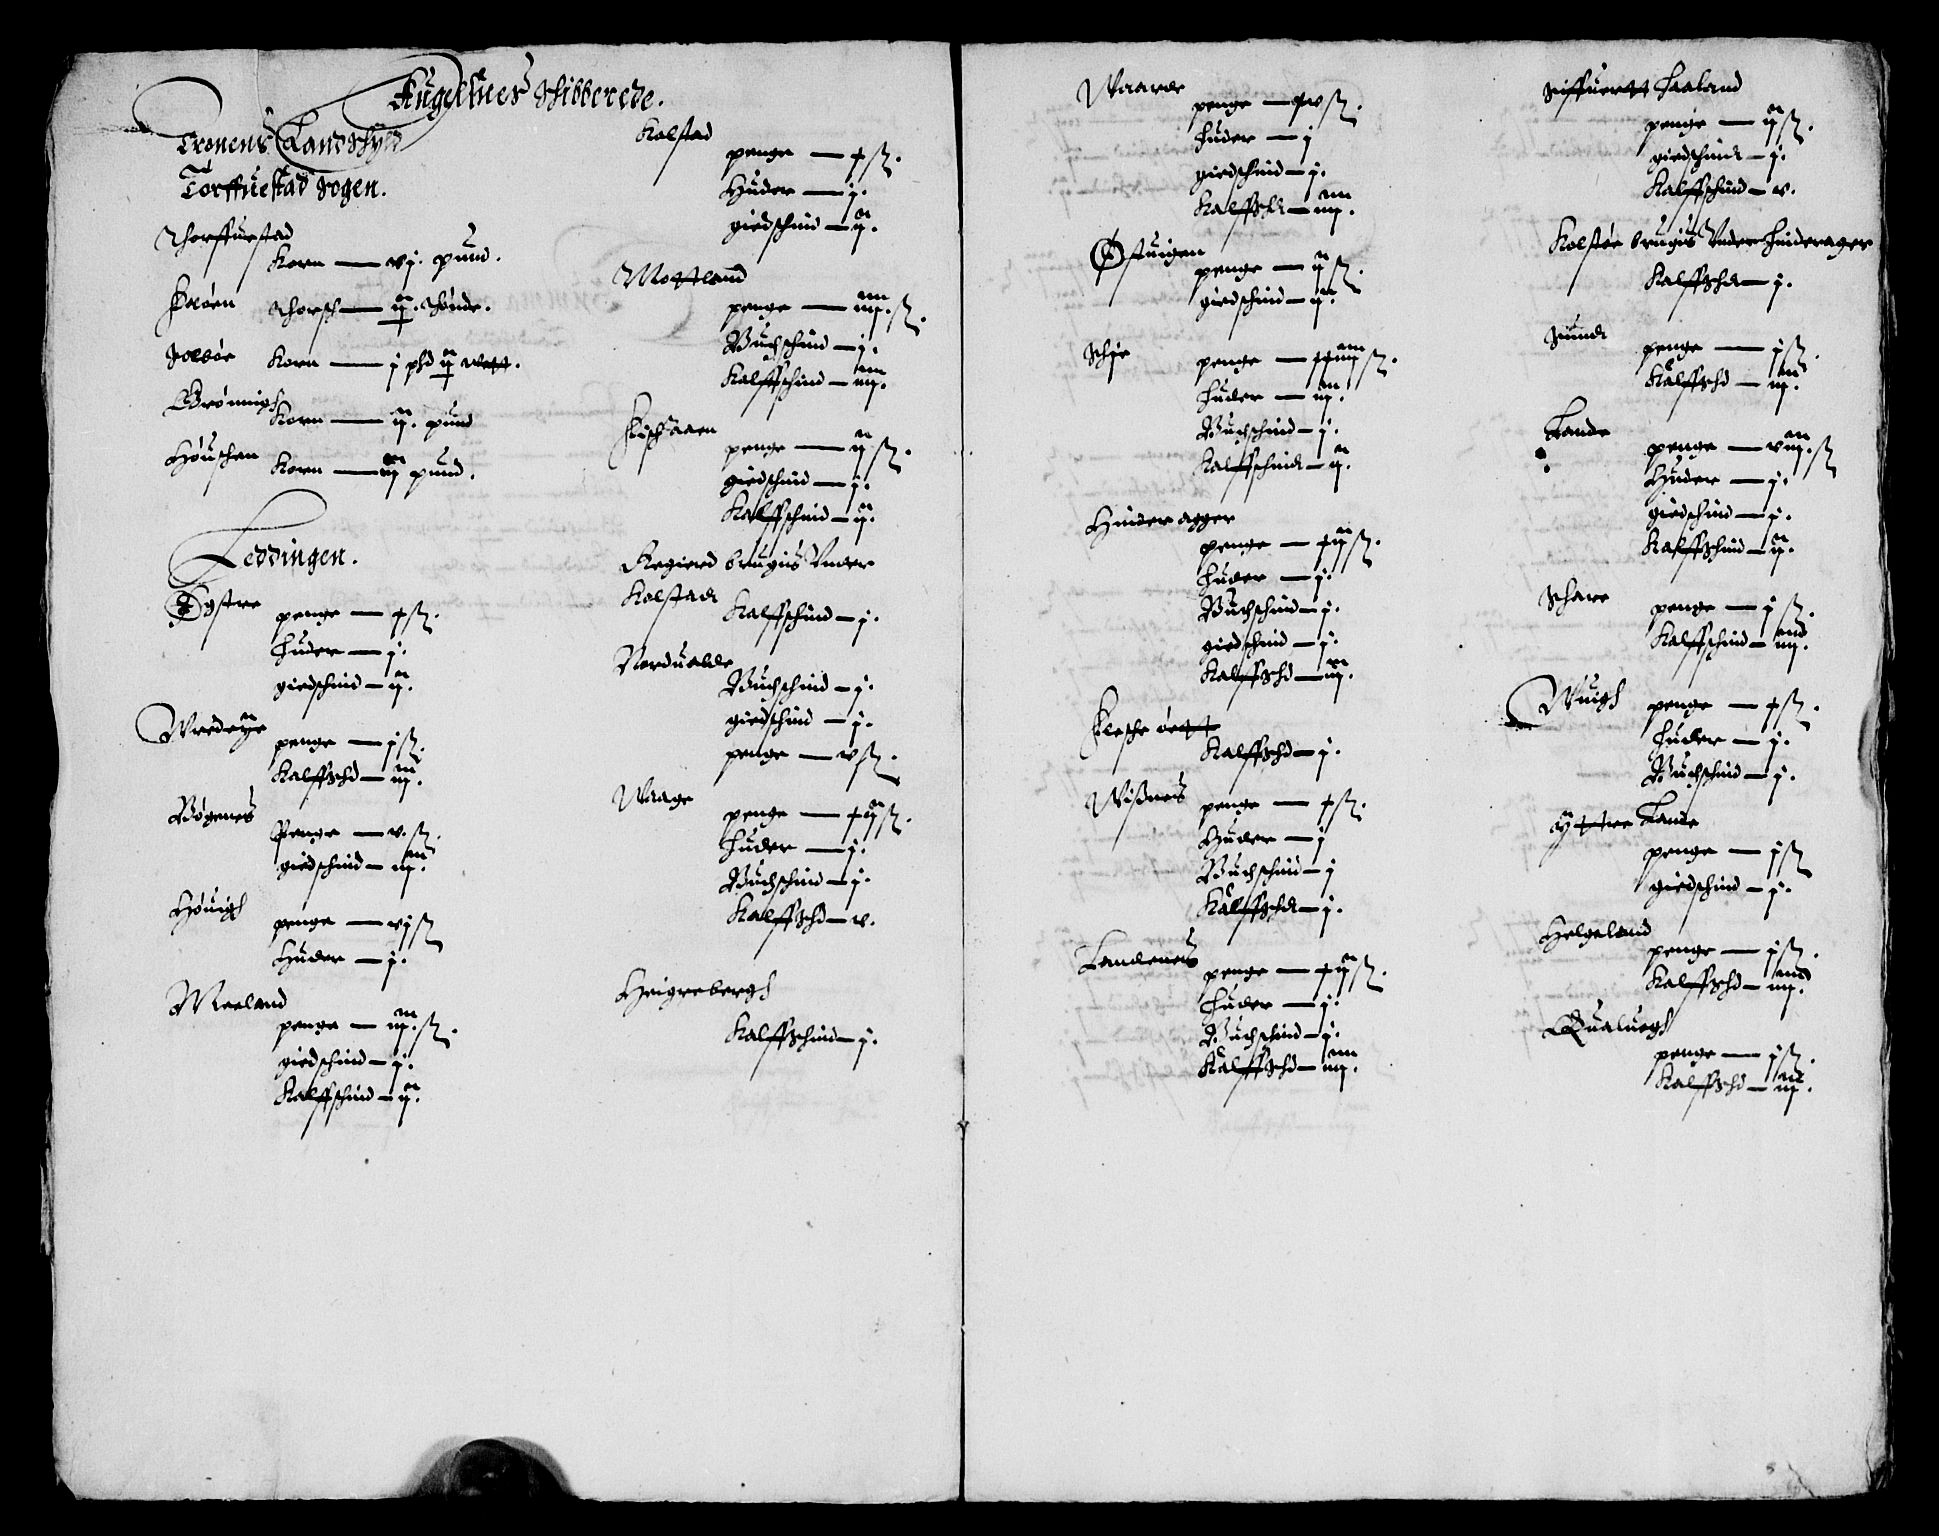 Augelsnes Schibberede.
Cronens Landtschyld
Torffuestad Sogen.
Thorffuestad
Korn — vj. pund.
Feløen Thorsch — ij. thønde.
Solbøe Korn — j phd ij wett.
Brønnigh
Korn — ij. pund
Høuschen Korn — iij pund.
Feddingen.
Østre penge — x ß.
Huder — j.
giedschind — ij.
Wredeije
penge — j ß.
Kalffschd — iij.
Bøgenes
Penge — v. ß.
giedschind — iij.
Høuigh
penge — vj ß
Huder — j.
Meeland
penge — iij. ß.
giedschind — j.
Kalffschind — ij.
Kolstad
penge — x ß.
Huder — j.
giedschind — ij.
Mortland
penge — iiij. ß.
Buchschind — j.
Kalffschind — iiij.
Fisch aaen
penge — ij ß.
giedschind — j.
Kalffschind — ij.
Regierd brugis Vnder
Kolstadt Kalffschind — j.
Nordualde
Buchschind — j.
giedschind — j.
penge — v ß.
Waage
penge — xij ß.
Huder — j.
Buchschind — j.
Kalffschd — v.
Heigrebergh
Kalffschind — j.
Waarde
penge — xv ß.
Huder — j
giedschind — j.
Kalffschd — iiij.
Østuigen
penge — ij ß.
giedschind — ij.
Schie penge — xxiiij ß.
Huder — iij.
Buchschind — j.
Kalffschind — ij.
Hinderagger
penge — xij ß.
Huder — j.
Buchschind — j.
giedschind — j.
Kalffschd — iij.
Flesche øertt
Kalffschd — j.
Wißnes penge — x ß.
Huder — j
Buchschind — j
Kalffschd — j.
Landenes
penge — xij ß.
Huder — j.
Buchschind — j.
Kalffschd — iiij.
Siffuertt Haaland
penge — ij ß.
giedschind — j.
Kalffschind — v.
Kolstøe brugis Vnder Hinderager
Kalffschd — j.
Sund penge — j ß.
Kalffschd — iij.
Lande
penge — viij. ß
Huder — j.
giedschind — j.
Kalffschind — ij.
Schare penge — j ß.
Kalffschind — iiij.
Wuigh penge — x ß.
Huder — j.
Buchschind — j.
Yttre Lande
penge — j ß
giedschind — j.
Helgeland
penge — j ß.
Kalffschd — iiij.
Qualuogh
penge — j ß.
Kalffschd — iij.